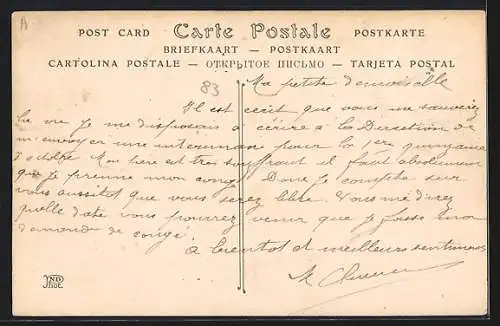 A
POST CARD Carte Postale POSTKARTE
BRIEFKAART — POSTKAART
CARTOLINA POSTALE — ОТКРЫТОЕ ПИСЬМО — TARJETA POSTAL
83
Ma petite demoiselle
Il est écrit que vous me sauverez
la vie je me disposais à écrire à la Direction de
m'envoyer une pour la 1ère quinzaine
d'octobre Mon père est très souffrant il faut absolument
que je prenne mon congé Donc je compte sur
vous aussitot que vous serez libre. Vous me direz
quelle date vous pourrez venir que je fasse ma
demande de congé.
a bientot et meilleurs sentiments
ND
Phot.